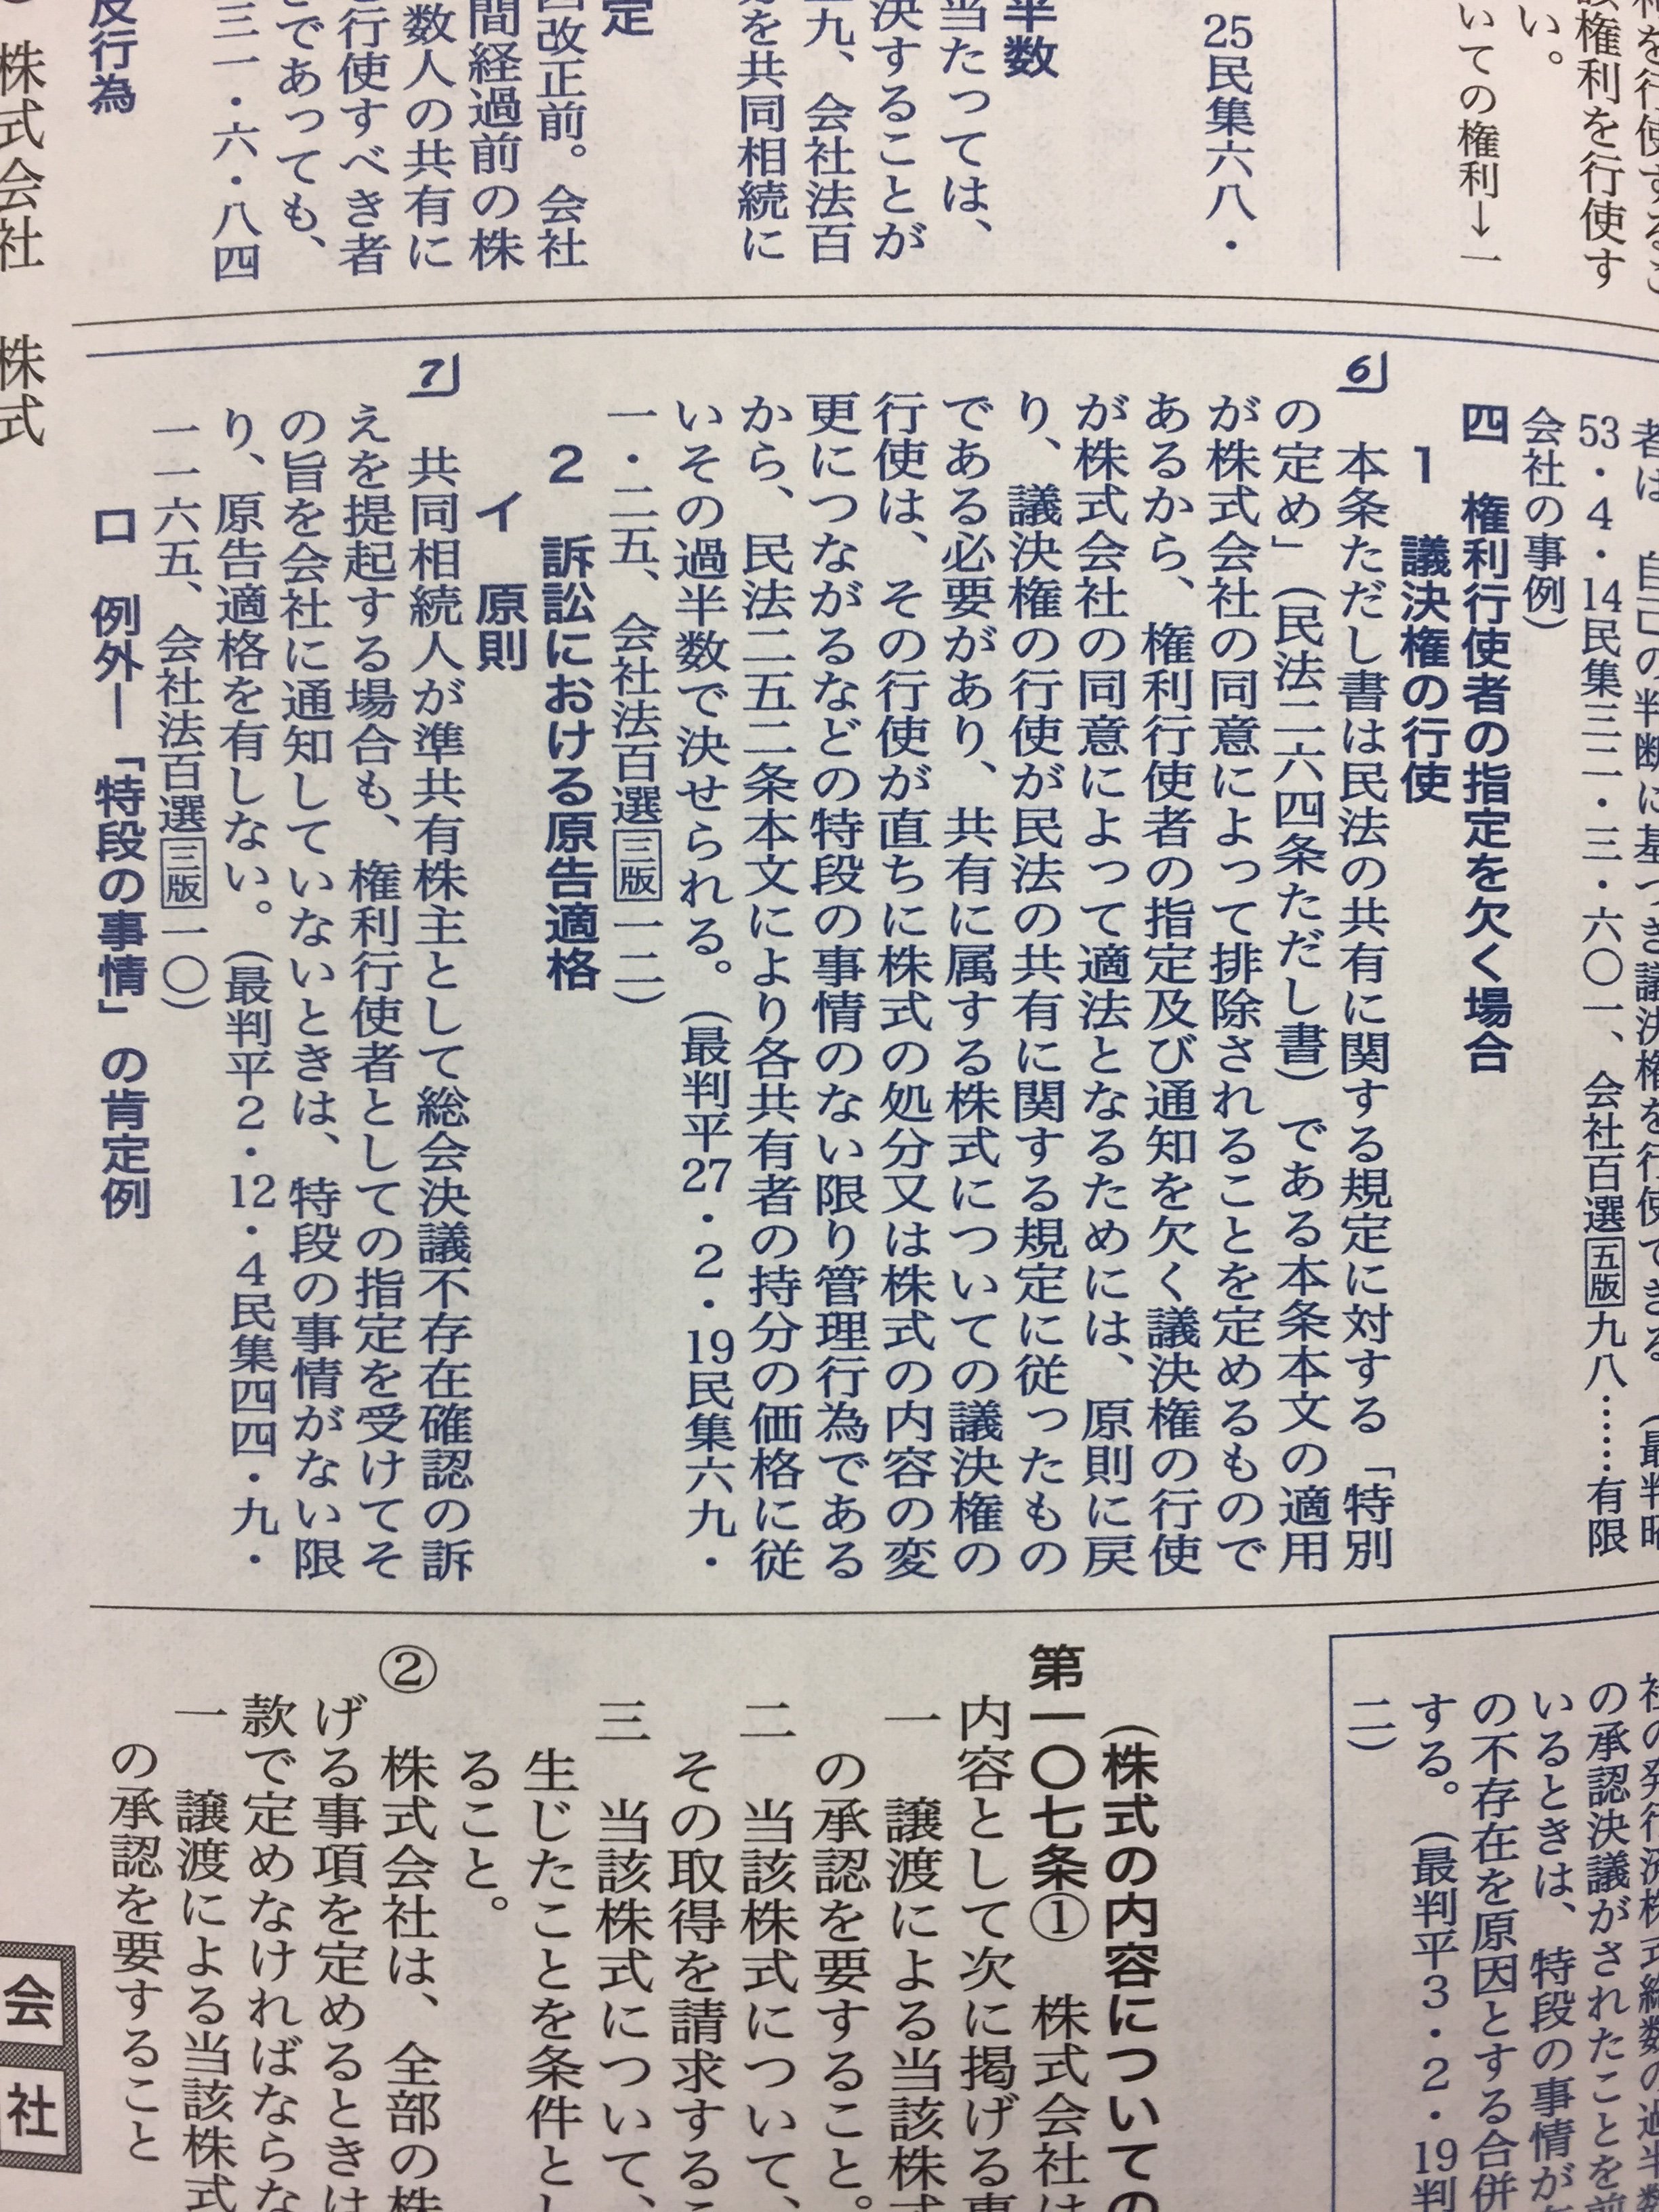 和を行使するこ
該権利を行使す
い。
いての権利→一
25民集六八・
半数
当たっては、
決することが
九、会社法百
分を共同相続に
定
改正前。会社
間経過前の株
数人の共有に
行使すべき者
であっても、
三一・六・八四
反行為
株式会社 株式
者は 自己の判断に基づき議決権を行使できる。(最判昭
53・4・14民集三二・三・六〇一、会社百選五版九八……有限
会社の事例)
四 権利行使者の指定を欠く場合
1 議決権の行使
6 本条ただし書は民法の共有に関する規定に対する「特別
の定め」(民法二六四条ただし書)である本条本文の適用
が株式会社の同意によって排除されることを定めるもので
あるから、権利行使者の指定及び通知を欠く議決権の行使
が株式会社の同意によって適法となるためには、原則に戻
り、議決権の行使が民法の共有に関する規定に従ったもの
である必要があり、共有に属する株式についての議決権の
行使は、その行使が直ちに株式の処分又は株式の内容の変
更につながるなどの特段の事情のない限り管理行為である
から、民法二五二条本文により各共有者の持分の価格に従
いその過半数で決せられる。(最判平27・2・19民集六九・
一・二五、会社法百選三版一二)
2 訴訟における原告適格
イ 原則
7 共同相続人が準共有株主として総会決議不存在確認の訴
えを提起する場合も、権利行使者としての指定を受けてそ
の旨を会社に通知していないときは、特段の事情がない限
り、原告適格を有しない。(最判平2・12・4民集四四・九・
一一六五、会社法百選三版一〇)
ロ 例外―「特段の事情」の肯定例
社の発行済株式総数の過半数
の承認決議がされたことを前
いるときは、特段の事情が
の不存在を原因とする合併
する。(最判平3・2・19判
二)
(株式の内容についての
第一〇七条① 株式会社は
内容として次に掲げる事
一 譲渡による当該株式
の承認を要すること。
二 当該株式について、
その取得を請求するこ
三 当該株式について、
生じたことを条件とし
ること。
② 株式会社は、全部の株
げる事項を定めるときは
款で定めなければならな
一 譲渡による当該株式
の承認を要すること
会社